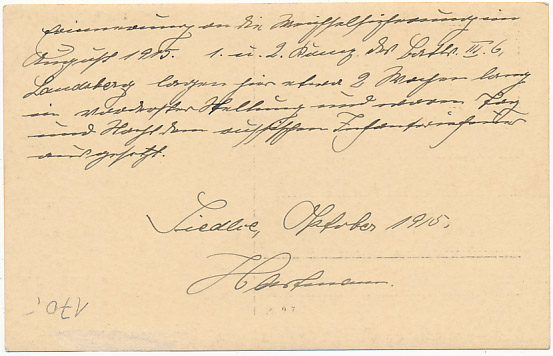 Erinnerung an die Weichselsicherung im
August 1915. 1. u. 2. Komp. des Batls. III. 6,
Landsberg lagen hier etwa 2 Wochen lang
in verdeckter Stellung und waren Tag
und Nacht dem russischen Infanteriefeuer
ausgesetzt.
Siedlce, Oktober 1915.
Hartmann.
170,-